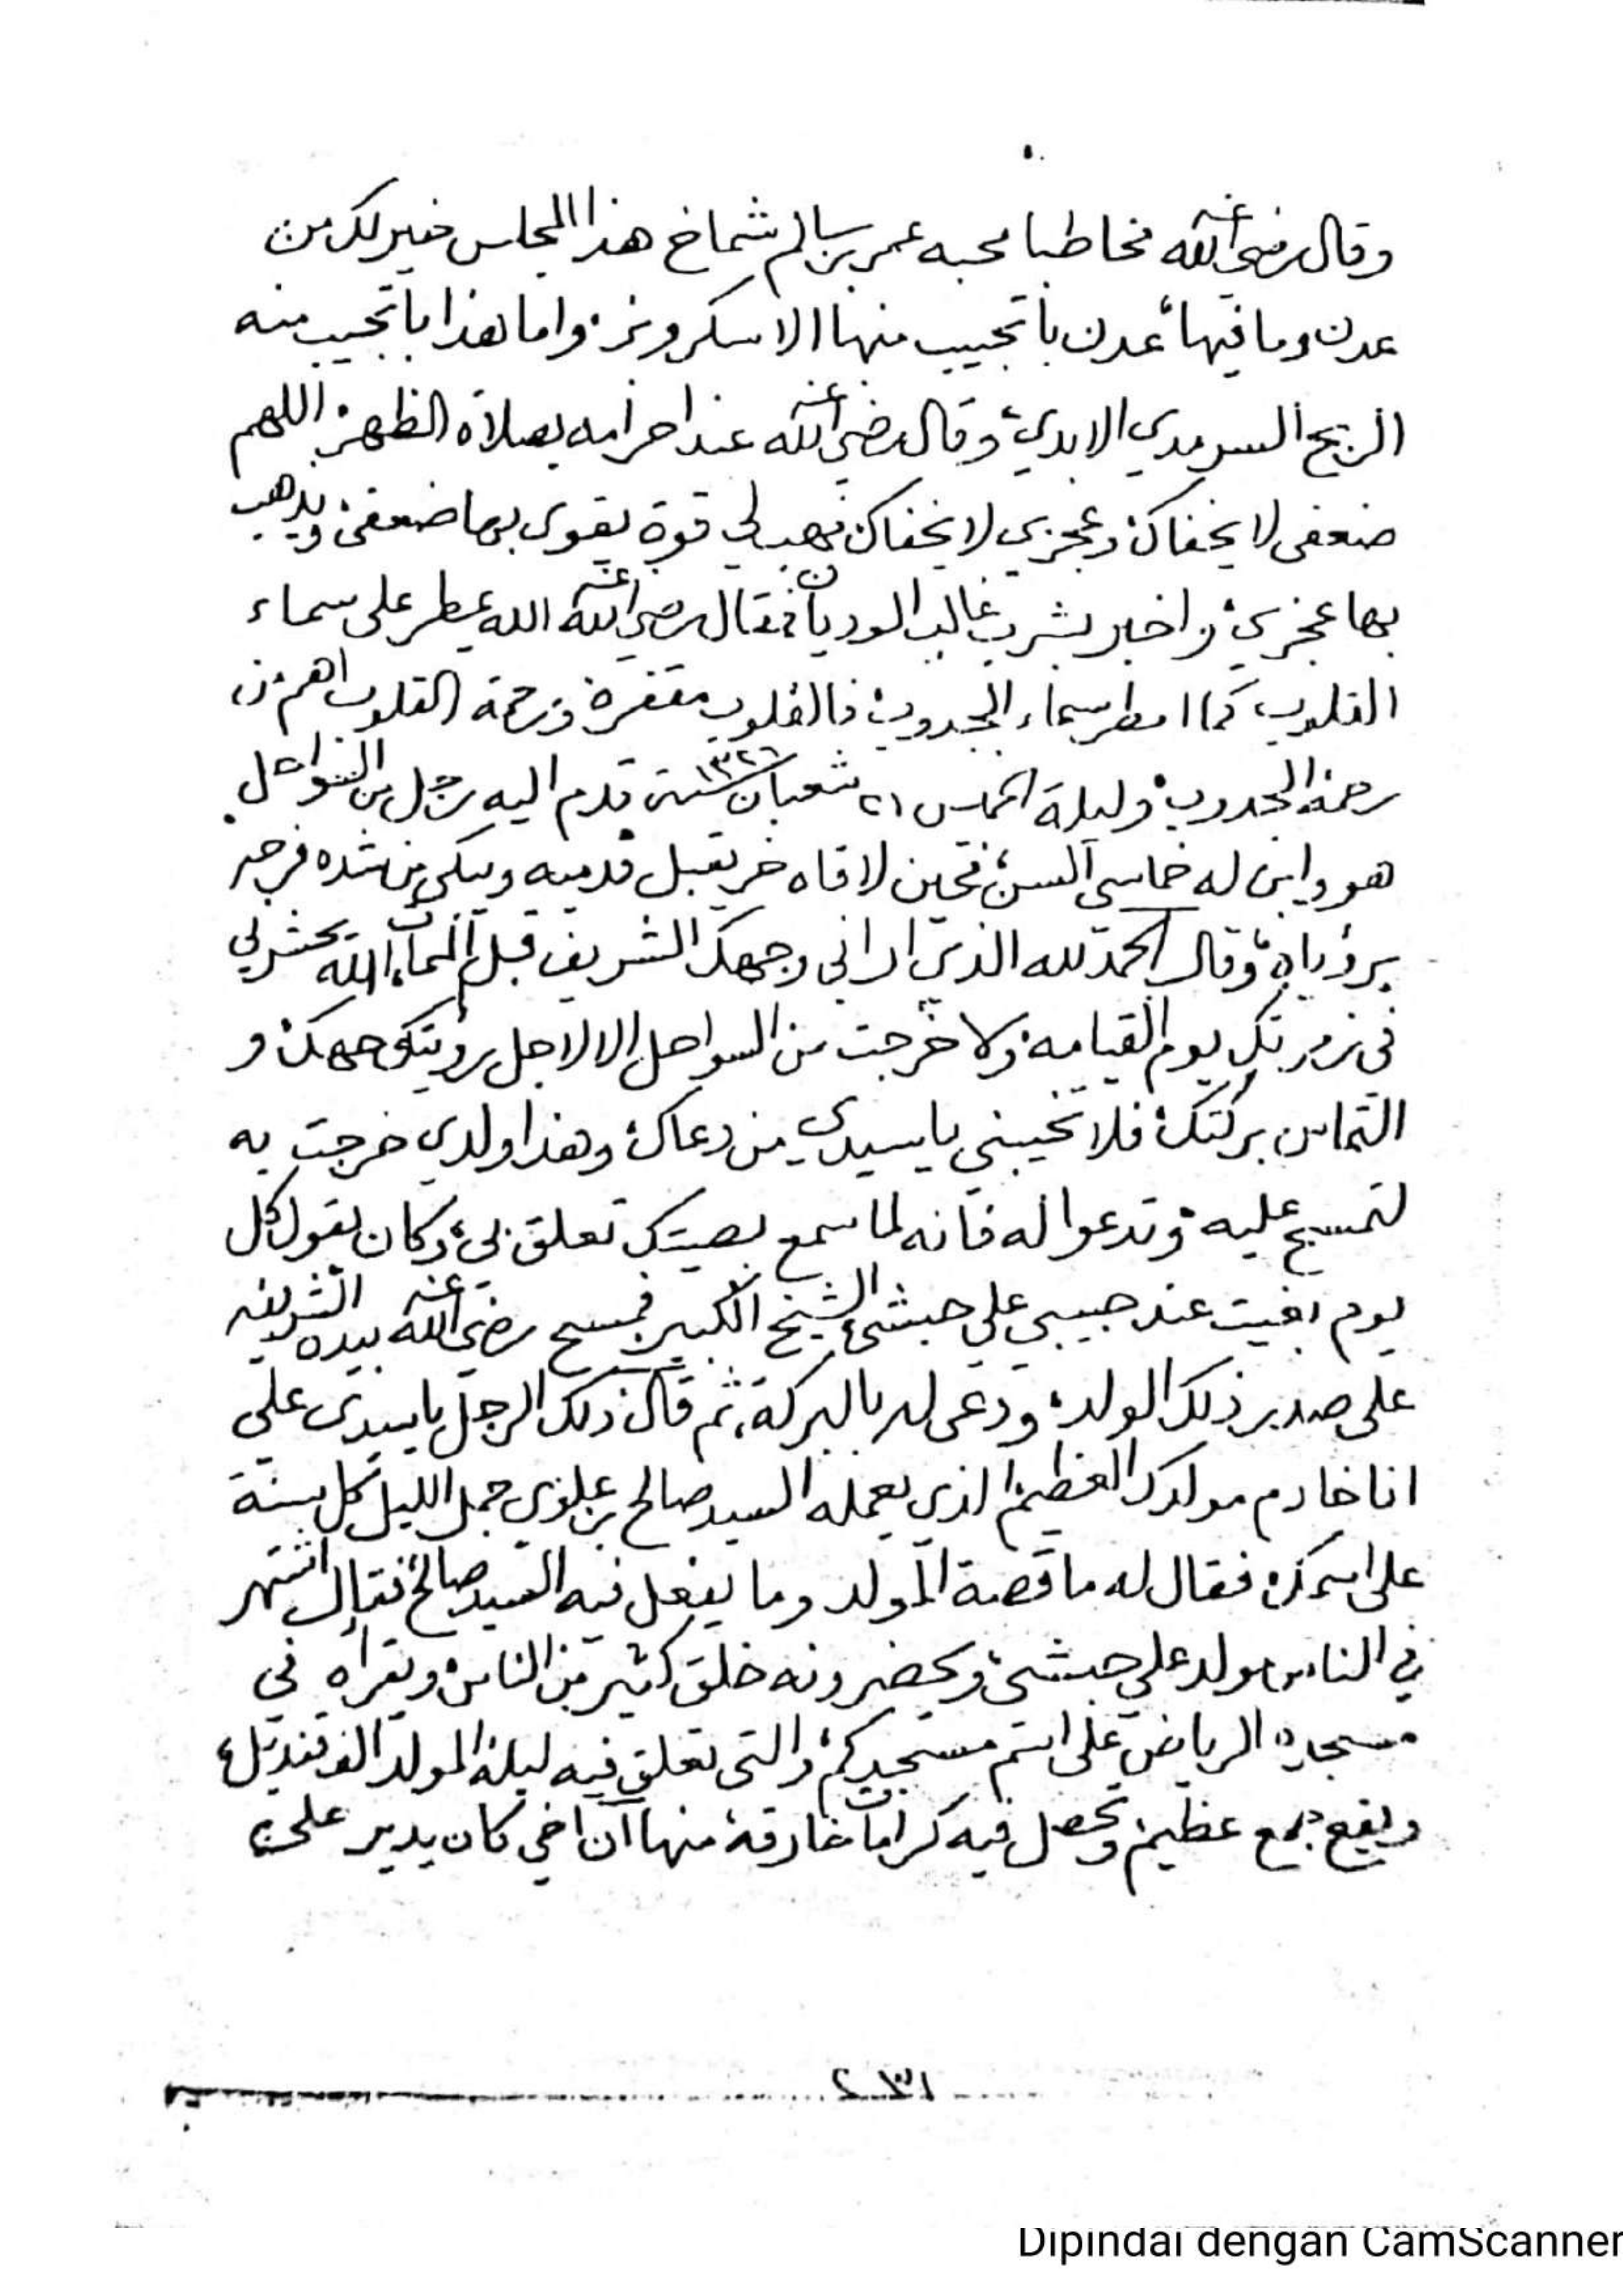 وقال رضي الله عنه مخاطبا محبه عمر بن سالم شماخ هذا المجلس خير لك من
عدن وما فيها، عدن باتجيب منها الا سكر ورز، واما هذا باتجيب منه
الربح السرمدي الابدي، وقال رضي الله عنه عند احرامه بصلاة الظهر، اللهم
ضعفى لا يخفاك، وعجزي لا يخفاك، فهب لي قوة يقوى بها ضعفى، ويذهب
بها عجزي، واخبر بشرب غالب الوديان، فقال رضي الله عنه الله يمطر على سماء
القلوب كما امطر سماء الجدوب، فالقلوب مقفرة ورحمة القلوب اهم من
رحمة الجدوب، وليلة الخميس ٢١ شعبان سنة ١٣٢٦ قدم اليه رجل من السواحل
هو وابن له خماسي السن، فحين لاقاه خر يقبل قدميه ويبكي من شده فرحه
برؤياه، وقال الحمد لله الذي ارانى وجهك الشريف قبل الممات، الله يحشرني
فى زمرتك يوم القيامه، ولا خرجت من السواحل الا لاجل رؤيتك وجهك، و
التماس بركتك، فلا تخيبني ياسيدي من دعاك، وهذا ولدي خرجت به
لتمسح عليه، وتدعوا له فانه لما سمع بصيتك تعلق بي، وكان يقول كل
يوم بغيت عند حبيبي علي حبشى، الشيخ الكبير فمسح رضي الله عنه بيده الشريفه
على صدر ذلك الولد، ودعى له بالبركة، ثم قال ذلك الرجل ياسيدي علي
انا خادم مولدك العظيم، الذي يعمله السيد صالح بن علوي جمل الليل كل سنة
على اسمك، فقال له ما قصة المولد وما يفعل فيه السيد صالح، فقال اشتهر
في الناس مولد علي حبشى، ويحضرونه خلق كثير من الناس، ويقراه في
مسجده الرياض على اسم مسجدكم، والتى تعلق فيه ليلة المولد الف قنديل،
ويقع جمع عظيم، وتحصل فيه كرامات خارقة، منها ان اخي كان يدير على
٢٣١
Dipindai dengan CamScanner